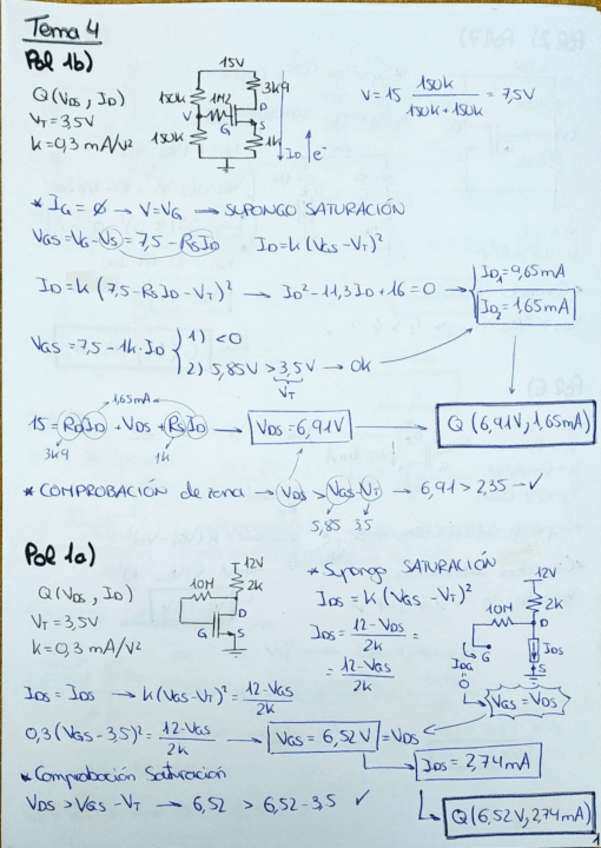 Tema 4
Pol 1b)
Q(V_DS, I_D)
V_T = 3,5V
k = 0,3 mA/V²
15V
3k9
150k
1M2
V
D
G
S
150k
1k
I_D
e⁻
V = 15 150k / (150k + 150k) = 7,5V
* I_G = Ø → V = V_G → SUPONGO SATURACIÓN
V_GS = V_G - V_S = 7,5 - R_S I_D I_D = k (V_GS - V_T)²
I_D = k (7,5 - R_S I_D - V_T)² → I_D² - 11,3 I_D + 16 = 0 → I_D1 = 9,65 mA
I_D2 = 1,65 mA
V_GS = 7,5 - 1k · I_D { 1) < 0
2) 5,85V > 3,5V → Ok
V_T
1,65 mA
15 = R_D I_D + V_DS + R_S I_D → V_DS = 6,91V → Q (6,91V, 1,65 mA)
3k9 1k
* COMPROBACIÓN de zona → V_DS > V_GS - V_T → 6,91 > 2,35 → ✓
5,85 3,5
Pol 1a)
Q(V_DS, I_D)
V_T = 3,5V
k = 0,3 mA/V²
12V
10M
2k
D
G
S
* Supongo SATURACIÓN
I_DS = k (V_GS - V_T)²
I_DS = (12 - V_DS) / 2k =
= (12 - V_GS) / 2k
12V
10M
2k
D
G
I_DS
I_DG
S
0
V_GS = V_DS
I_DS = I_DS → k (V_GS - V_T)² = (12 - V_GS) / 2k
0,3 (V_GS - 3,5)² = (12 - V_GS) / 2k → V_GS = 6,52V = V_DS
I_DS = 2,74 mA
* Comprobación Saturación
V_DS > V_GS - V_T → 6,52 > 6,52 - 3,5 ✓
Q (6,52V, 2,74 mA)
1